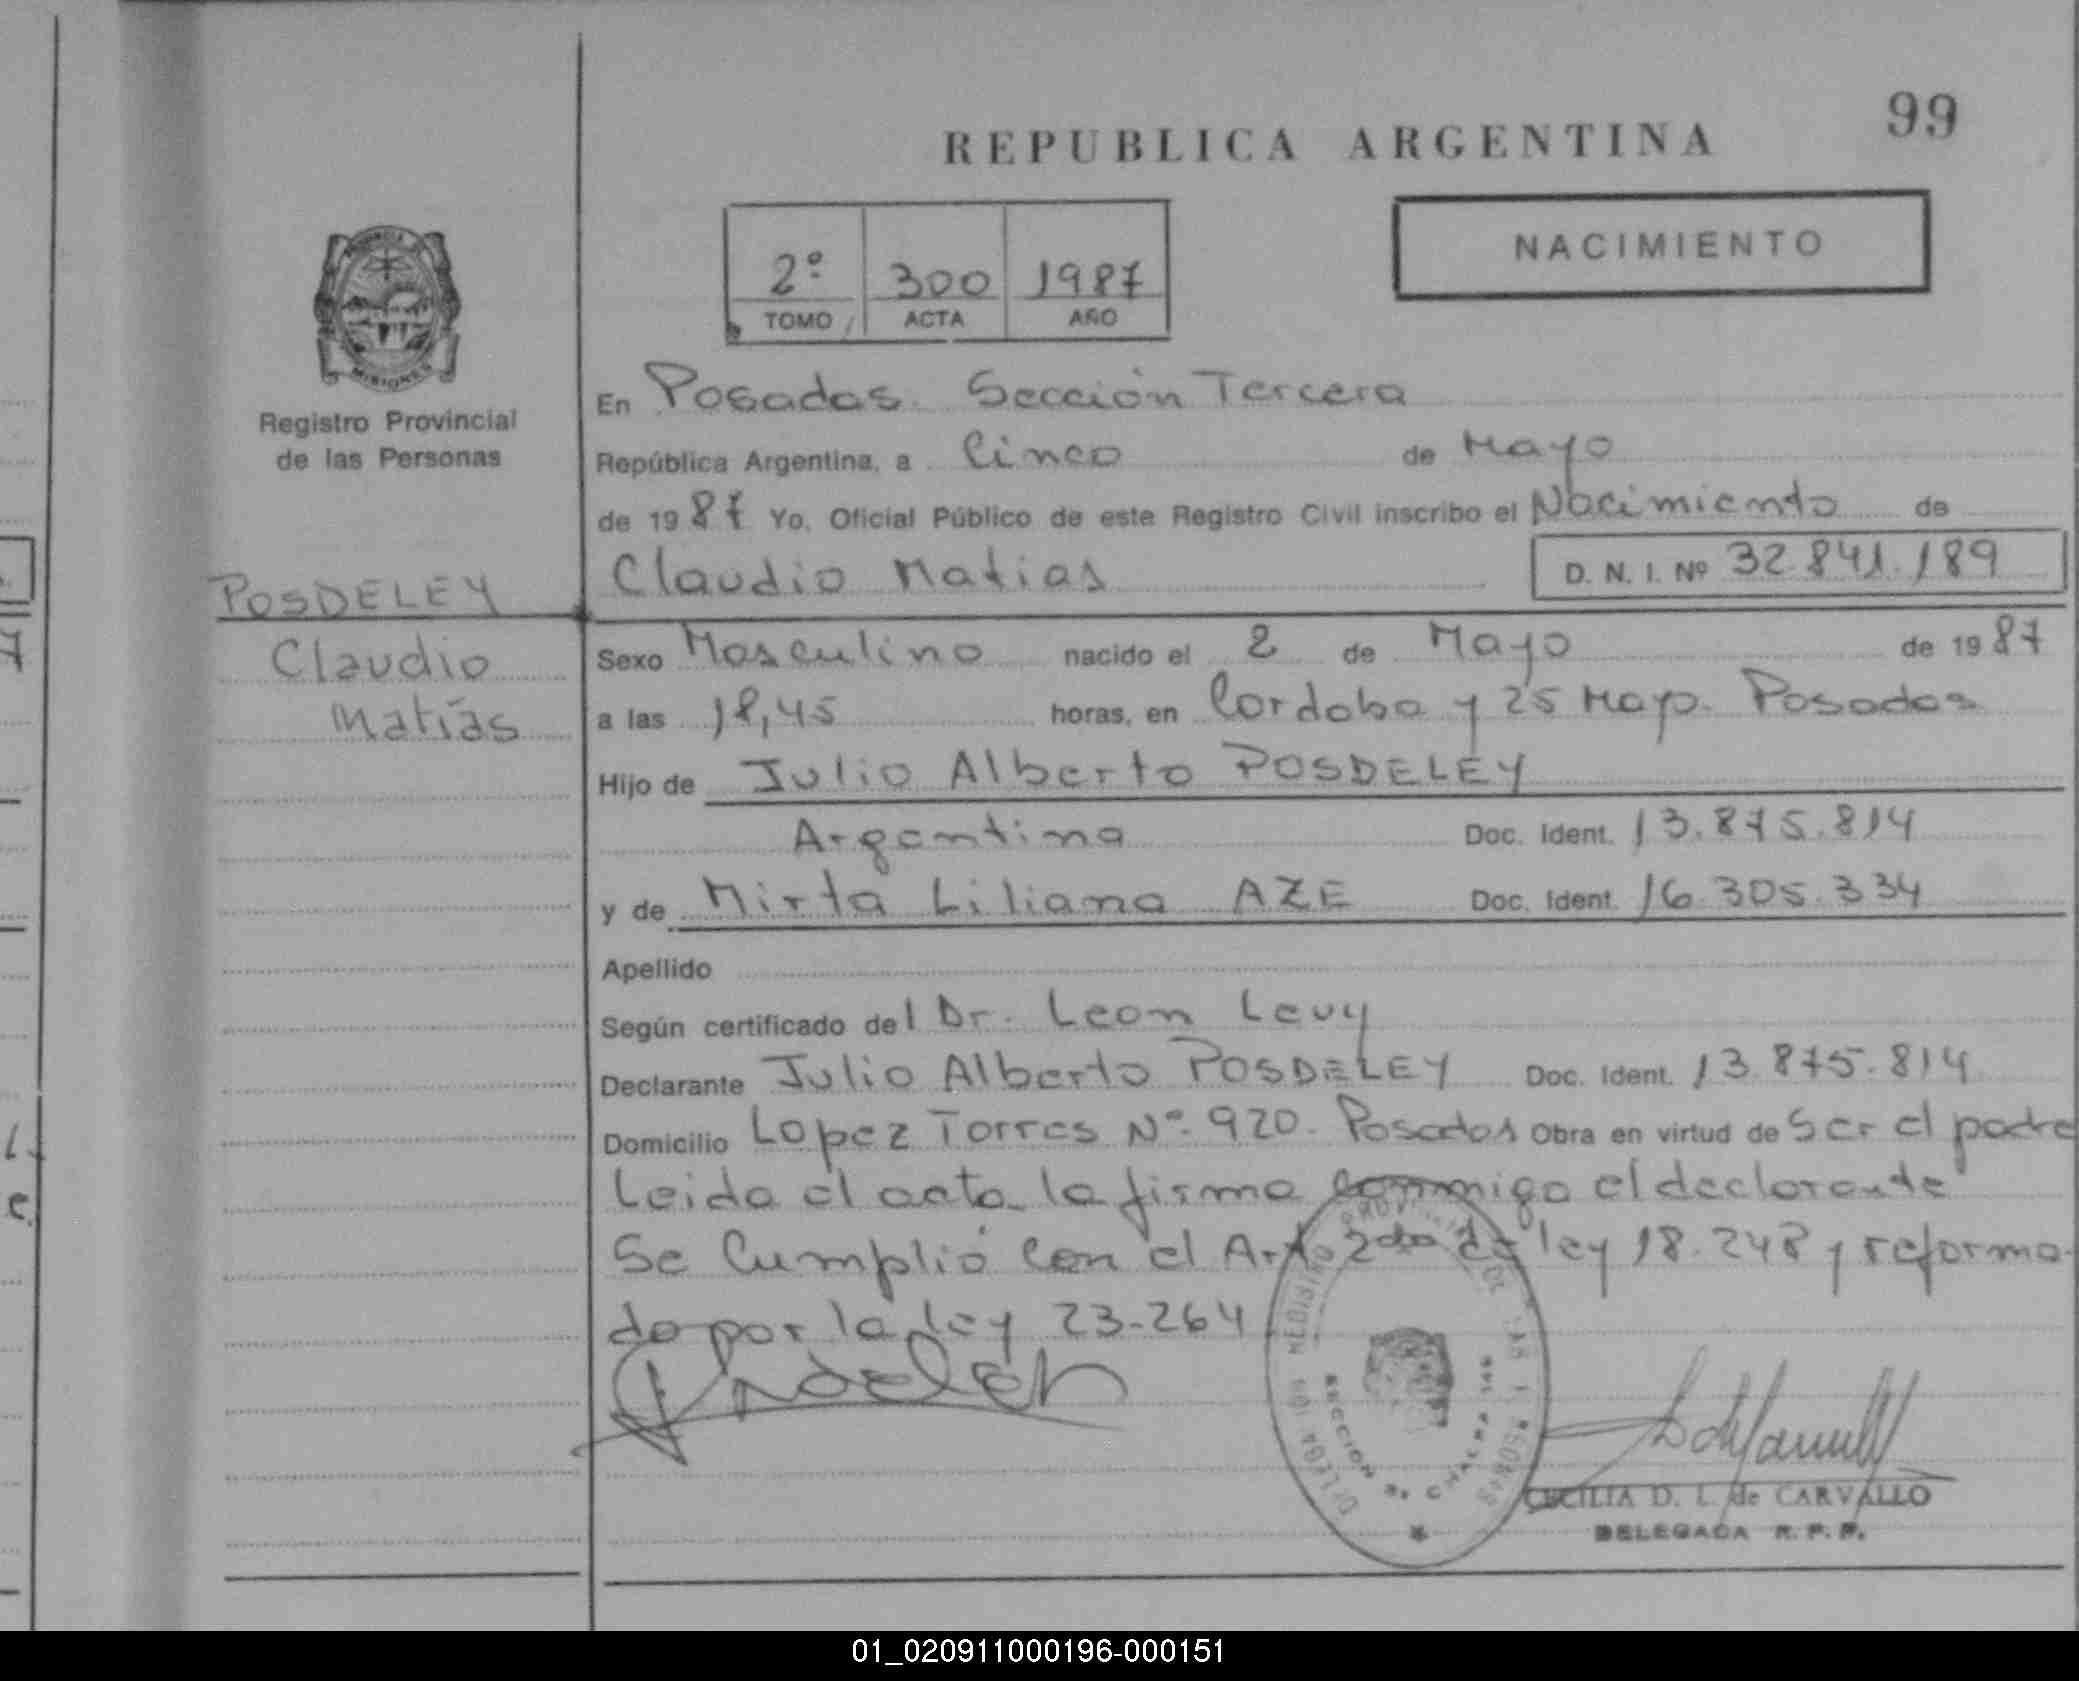 99
REPUBLICA ARGENTINA
NACIMIENTO
2º 300 1987
TOMO ACTA AÑO
MISIONES
Registro Provincial
de las Personas
POSDELEY
Claudio
Matías
En Posadas. Sección Tercera
República Argentina, a Cinco de Mayo
de 1987 Yo, Oficial Público de este Registro Civil inscribo el Nacimiento de
Claudio Matias D. N. I. Nº 32.841.189
Sexo Masculino nacido el 2 de Mayo de 1987
a las 18,45 horas, en Cordoba y 25 Mayo. Posadas
Hijo de Julio Alberto POSDELEY
Argentina Doc. Ident. 13.875.814
y de Mirta Liliana AZE Doc. Ident. 16.305.334
Apellido
Según certificado del Dr. Leon Levy
Declarante Julio Alberto POSDELEY Doc. Ident. 13.875.814
Domicilio Lopez Torres Nº 920. Posadas Obra en virtud de Ser el padre
Leida el acta la firma conmigo el declarante
Se Cumplió con el Art. 2do de ley 18.248 y reforma-
do por la ley 23-264
CECILIA D. L. de CARVALLO
DELEGADA R. P. P.
01_020911000196-000151